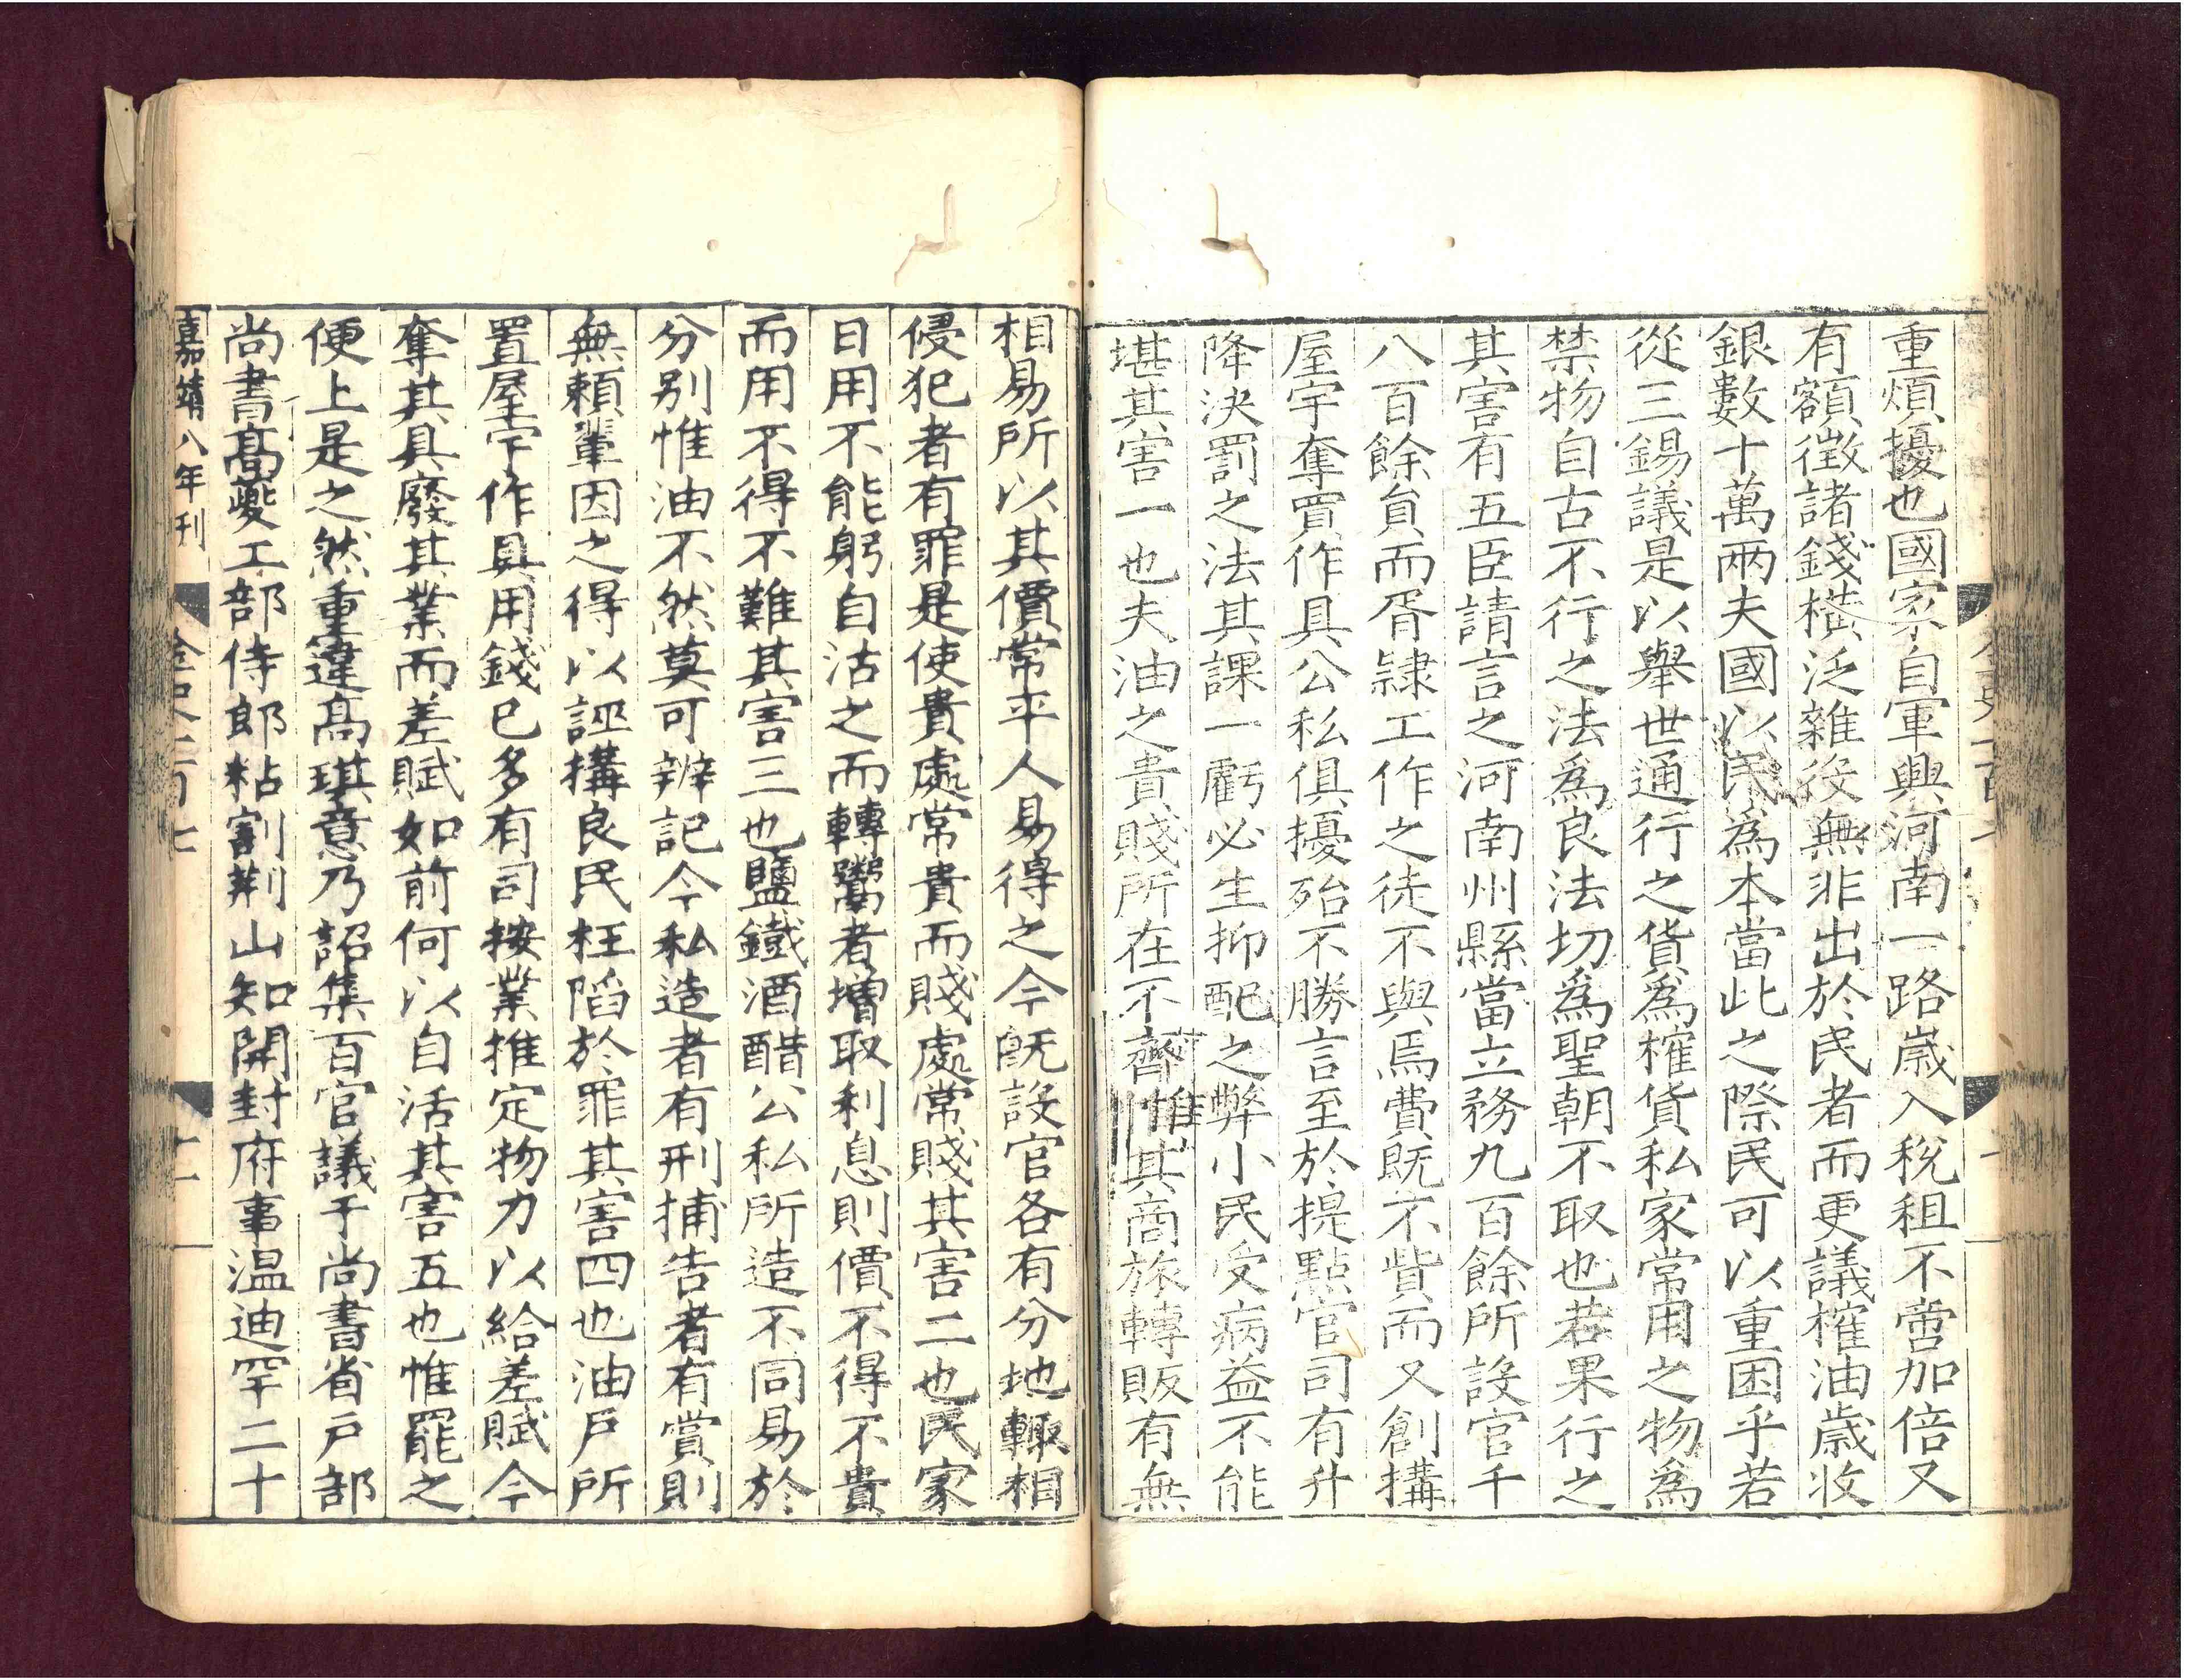 重煩擾也國家自軍興河南一路歲入稅租不啻加倍又
有額徵諸錢橫泛雜役無非出於民者而更議榷油歲收
銀數十萬兩夫國以民為本當此之際民可以重困乎若
從三錫議是以舉世通行之貨為榷貨私家常用之物為
禁物自古不行之法為良法切為聖朝不取也若果行之
其害有五臣請言之河南州縣當立務九百餘所設官千
八百餘員而胥隷工作之徒不與焉費既不貲而又創搆
屋宇奪買作具公私俱擾殆不勝言至於提點官司有升
降決罰之法其課一虧必生抑配之弊小民受病益不能
堪其害一也夫油之貴賤所在不齊惟其商旅轉販有無
相易所以其價常平人易得之今既設官各有分地輙相
侵犯者有罪是使貴處常貴而賤處常賤其害二也民家
日用不能躬自沽之而轉鬻者增取利息則價不得不貴
而用不得不難其害三也鹽鐵酒醋公私所造不同易於
分別惟油不然莫可辨記今私造者有刑捕告者有賞則
無賴輩因之得以誣搆良民枉陷於罪其害四也油戶所
置屋宇作具用錢已多有司按業推定物力以給差賦今
奪其具廢其業而差賦如前何以自活其害五也惟罷之
便上是之然重違髙琪意乃詔集百官議于尚書省戶部
尚書髙夔工部侍郎粘割荆山知開封府事温迪罕二十
嘉靖八年刊